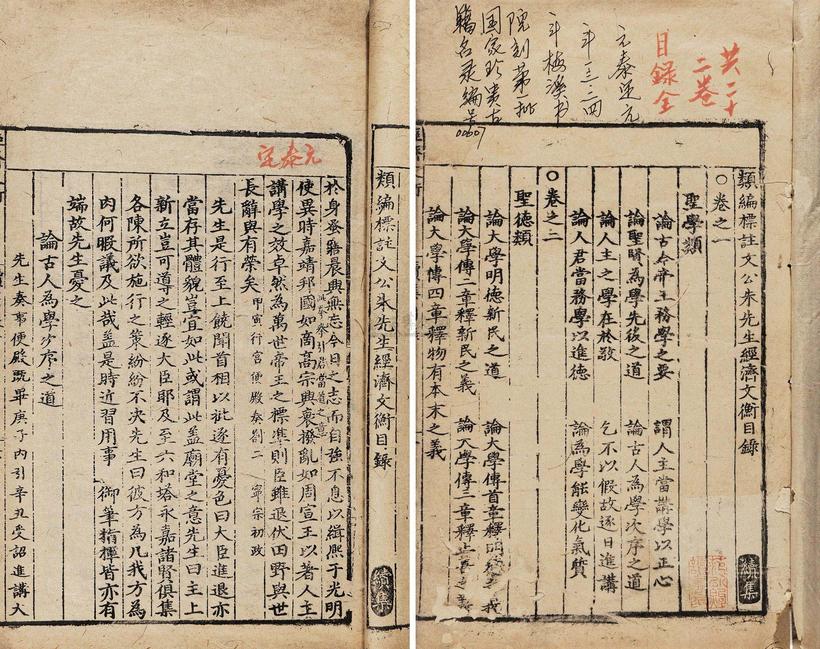 共二十
二卷
目錄全
元泰定元
年三二四
年梅溪书
院刻第一批
国家珍贵古
籍名录编号
00607
類編標註文公朱先生經濟文衡目錄
續集
○卷之一
聖學類
論古今帝王務學之要
謂人主當講學以正心
論聖賢為學先後之道
論古人為學次序之道
論人主之學在於敬
乞不以假故逐日進講
論人君當務學以進德
論為學能變化氣質
○卷之二
聖德類
論大學明德新民之道
論大學傳首章釋明德之義
論大學傳二章釋新民之義
論大學傳三章釋止善之義
論大學傳四章釋物有本末之義
類編標註文公朱先生經濟文衡目錄
續集
元泰定
於身蚤寤晨興無忘今日之志而自強不息以緝熙于光明
使異時嘉靖邦國如商高宗興衰撥亂如周宣王以著人主
講學之效卓然為萬世帝王之標準則臣雖退伏田野與世
長辭與有榮矣 甲寅行宮便殿奏劄二 寧宗初政
先生是行至上饒聞首相以批逐有憂色曰大臣進退亦
當存其體貌豈宜如此或謂此蓋廟堂之意先生曰主上
新立豈可導之輕逐大臣耶及至六和塔永嘉諸賢俱集
各陳所欲施行之策紛紛不决先生曰彼方為几我方為
肉何暇議及此哉蓋是時近習用事 御筆指揮皆亦有
端故先生憂之
論古人為學次序之道
先生奏事便殿既畢庚子內引辛丑受詔進講大